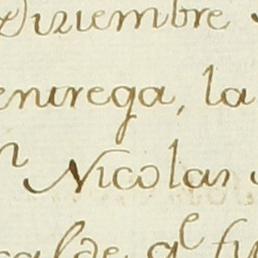 Diziembre
entrega, la
n Nicolas
calde q.l fu